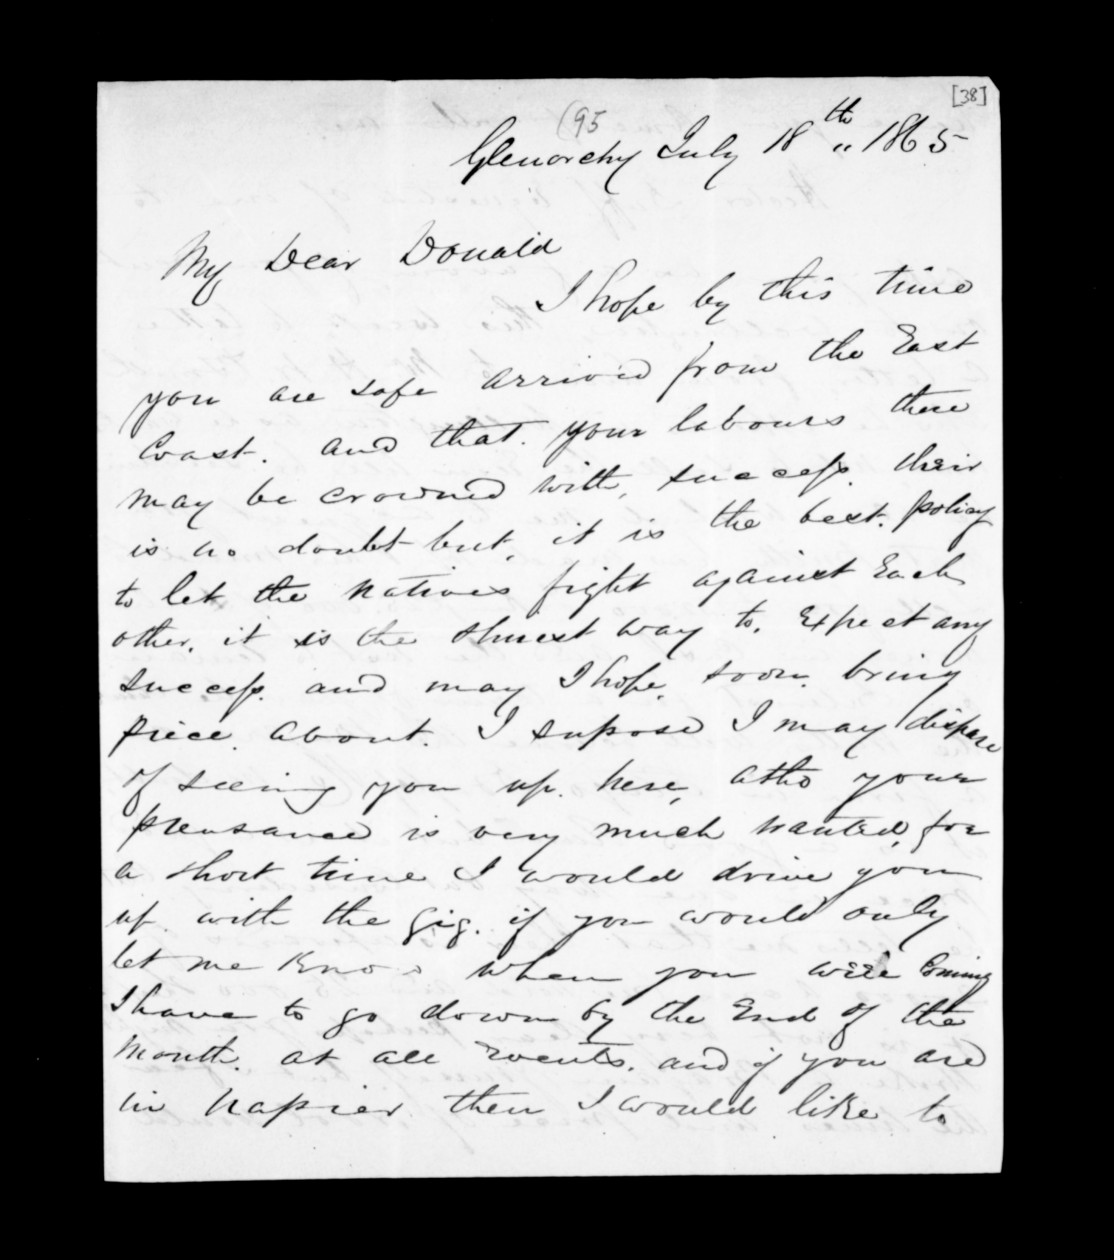 [38]
(95
Glenorchy July 18th ,, 1865
My Dear Donald
I hope by this time
you are safe arrived from the East
Coast. and that. your labours there
may be crowned with, success. their
is no doubt but, it is the best. policy
to let the natives fight against Each
other. it is the shuest way to. Expect any
success. and may I hope, soon. bring
piece. about. I supose I may dispare
of seeing you up. here, altho your
preasance is very much wanted, for
a short time I would drive you
up. with the Gig. if you would only
let me know when you were Coming
I have to go down by the End of the
month. at all Events. and if you are
in Napier then I would like to